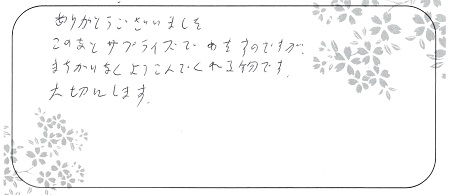 ありがとうございました
このあとサプライズでわたすのですが、
まちがいなくよろこんでくれる物です。
大切にします。